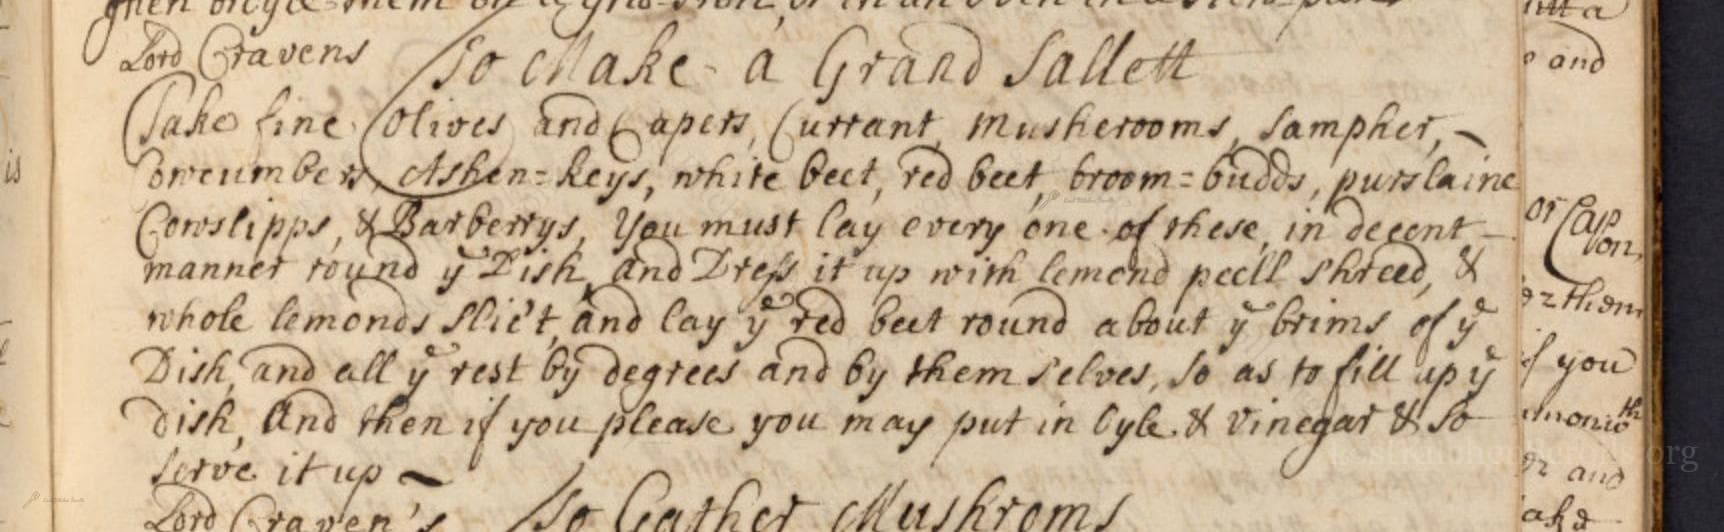 them on a Grid-Iron, or in an Oven in a stew-pan
Lord Cravens To Make a Grand Sallett
Take fine Olives and Capers, Currant, Musherooms, Sampher,
Cowcumbers, Ashen=keys, white beet, red beet, broom=budds, purslaine
Cowslipps, & Barberrys, You must lay every one of these, in decent
manner round yͤ Dish, and Dress it up with lemond peell shreed, &
whole lemonds slic't, and lay yͤ red beet round about yͤ brims of yͤ
Dish, and all yͤ rest by degrees and by them selves, so as to fill up yͤ
dish, And then if you please you may put in Oyle & Vinegar & so
serve it up
Lord Craven's To Gather Mushroms
is
and
or Capon,
them
if you
and